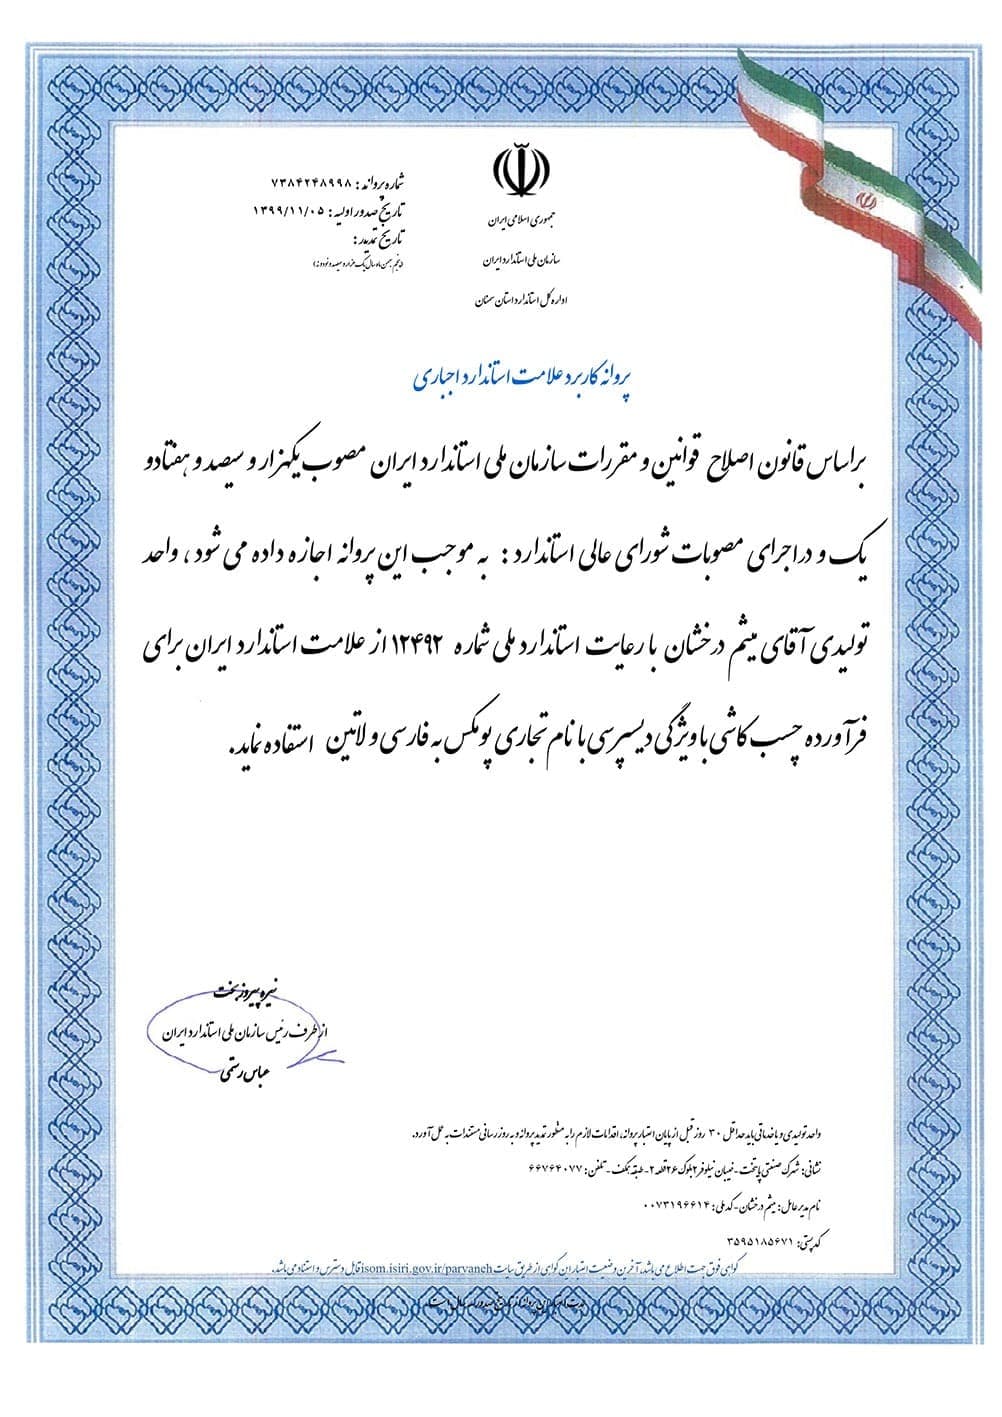 جمهوری اسلامی ایران
سازمان ملی استاندارد ایران
اداره کل استاندارد استان سمنان
شماره پروانه: ۷۳۸۴۲۴۸۹۹۸
تاریخ صدور اولیه: ۱۳۹۹/۱۱/۰۵
تاریخ تمدید:
(پنجم بهمن ماه سال یک هزار و سیصد و نود و نه)
پروانه کاربرد علامت استاندارد اجباری
براساس قانون اصلاح قوانین و مقررات سازمان ملی استاندارد ایران مصوب یکهزار و سیصد و هفتاد و
یک و در اجرای مصوبات شورای عالی استاندارد: به موجب این پروانه اجازه داده می شود، واحد
تولیدی آقای میثم درخشان با رعایت استاندارد ملی شماره ۱۲۴۹۲ از علامت استاندارد ایران برای
فرآورده چسب کاشی با ویژگی دیسپرسی با نام تجاری پومکس به فارسی و لاتین استفاده نماید.
نیره پیروزبخت
از طرف رئیس سازمان ملی استاندارد ایران
عباس رستمی
واحد تولیدی و یا خدماتی باید حداقل ۳۰ روز قبل از پایان اعتبار پروانه، اقدامات لازم را به منظور تمدید پروانه و به روز رسانی مستندات به عمل آورد.
نشانی: شهرک صنعتی پایتخت - خیابان نیلوفر ۲ بلوک ۲۶ قطعه ۲ - طبقه همکف - تلفن: ۶۶۷۶۴۰۷۷
نام مدیر عامل: میثم درخشان - کد ملی: ۰۰۷۳۱۹۶۶۱۴
کد پستی: ۳۵۹۵۱۸۵۶۷۱
گواهی فوق جهت اطلاع می باشد، آخرین وضعیت اعتبار این گواهی از طریق سایت isom.isiri.gov.ir/parvaneh قابل دسترس و استناد می باشد.
مدت اعتبار این پروانه از تاریخ صدور سال است